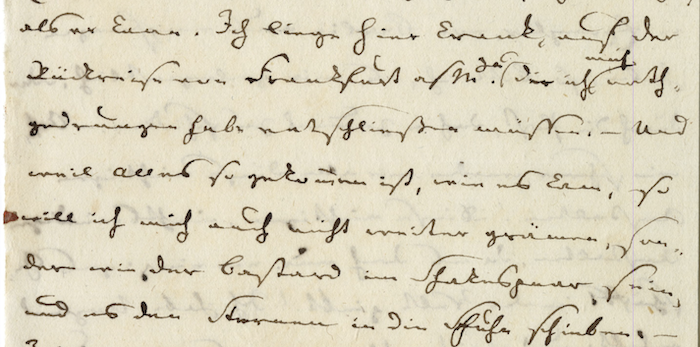 als er kam. Ich liege hier krank, auf der
Rückreise von Frankfurt a/M. (der ich mich noth-
gedrungen habe entschließen müssen. – Und
weil alles so gekommen ist, wie es kam, so
will ich mich auch nicht weiter grämen, son-
dern wie der Bastard im Shakespear sein,
und es den Sternen in die Schuhe schieben. –